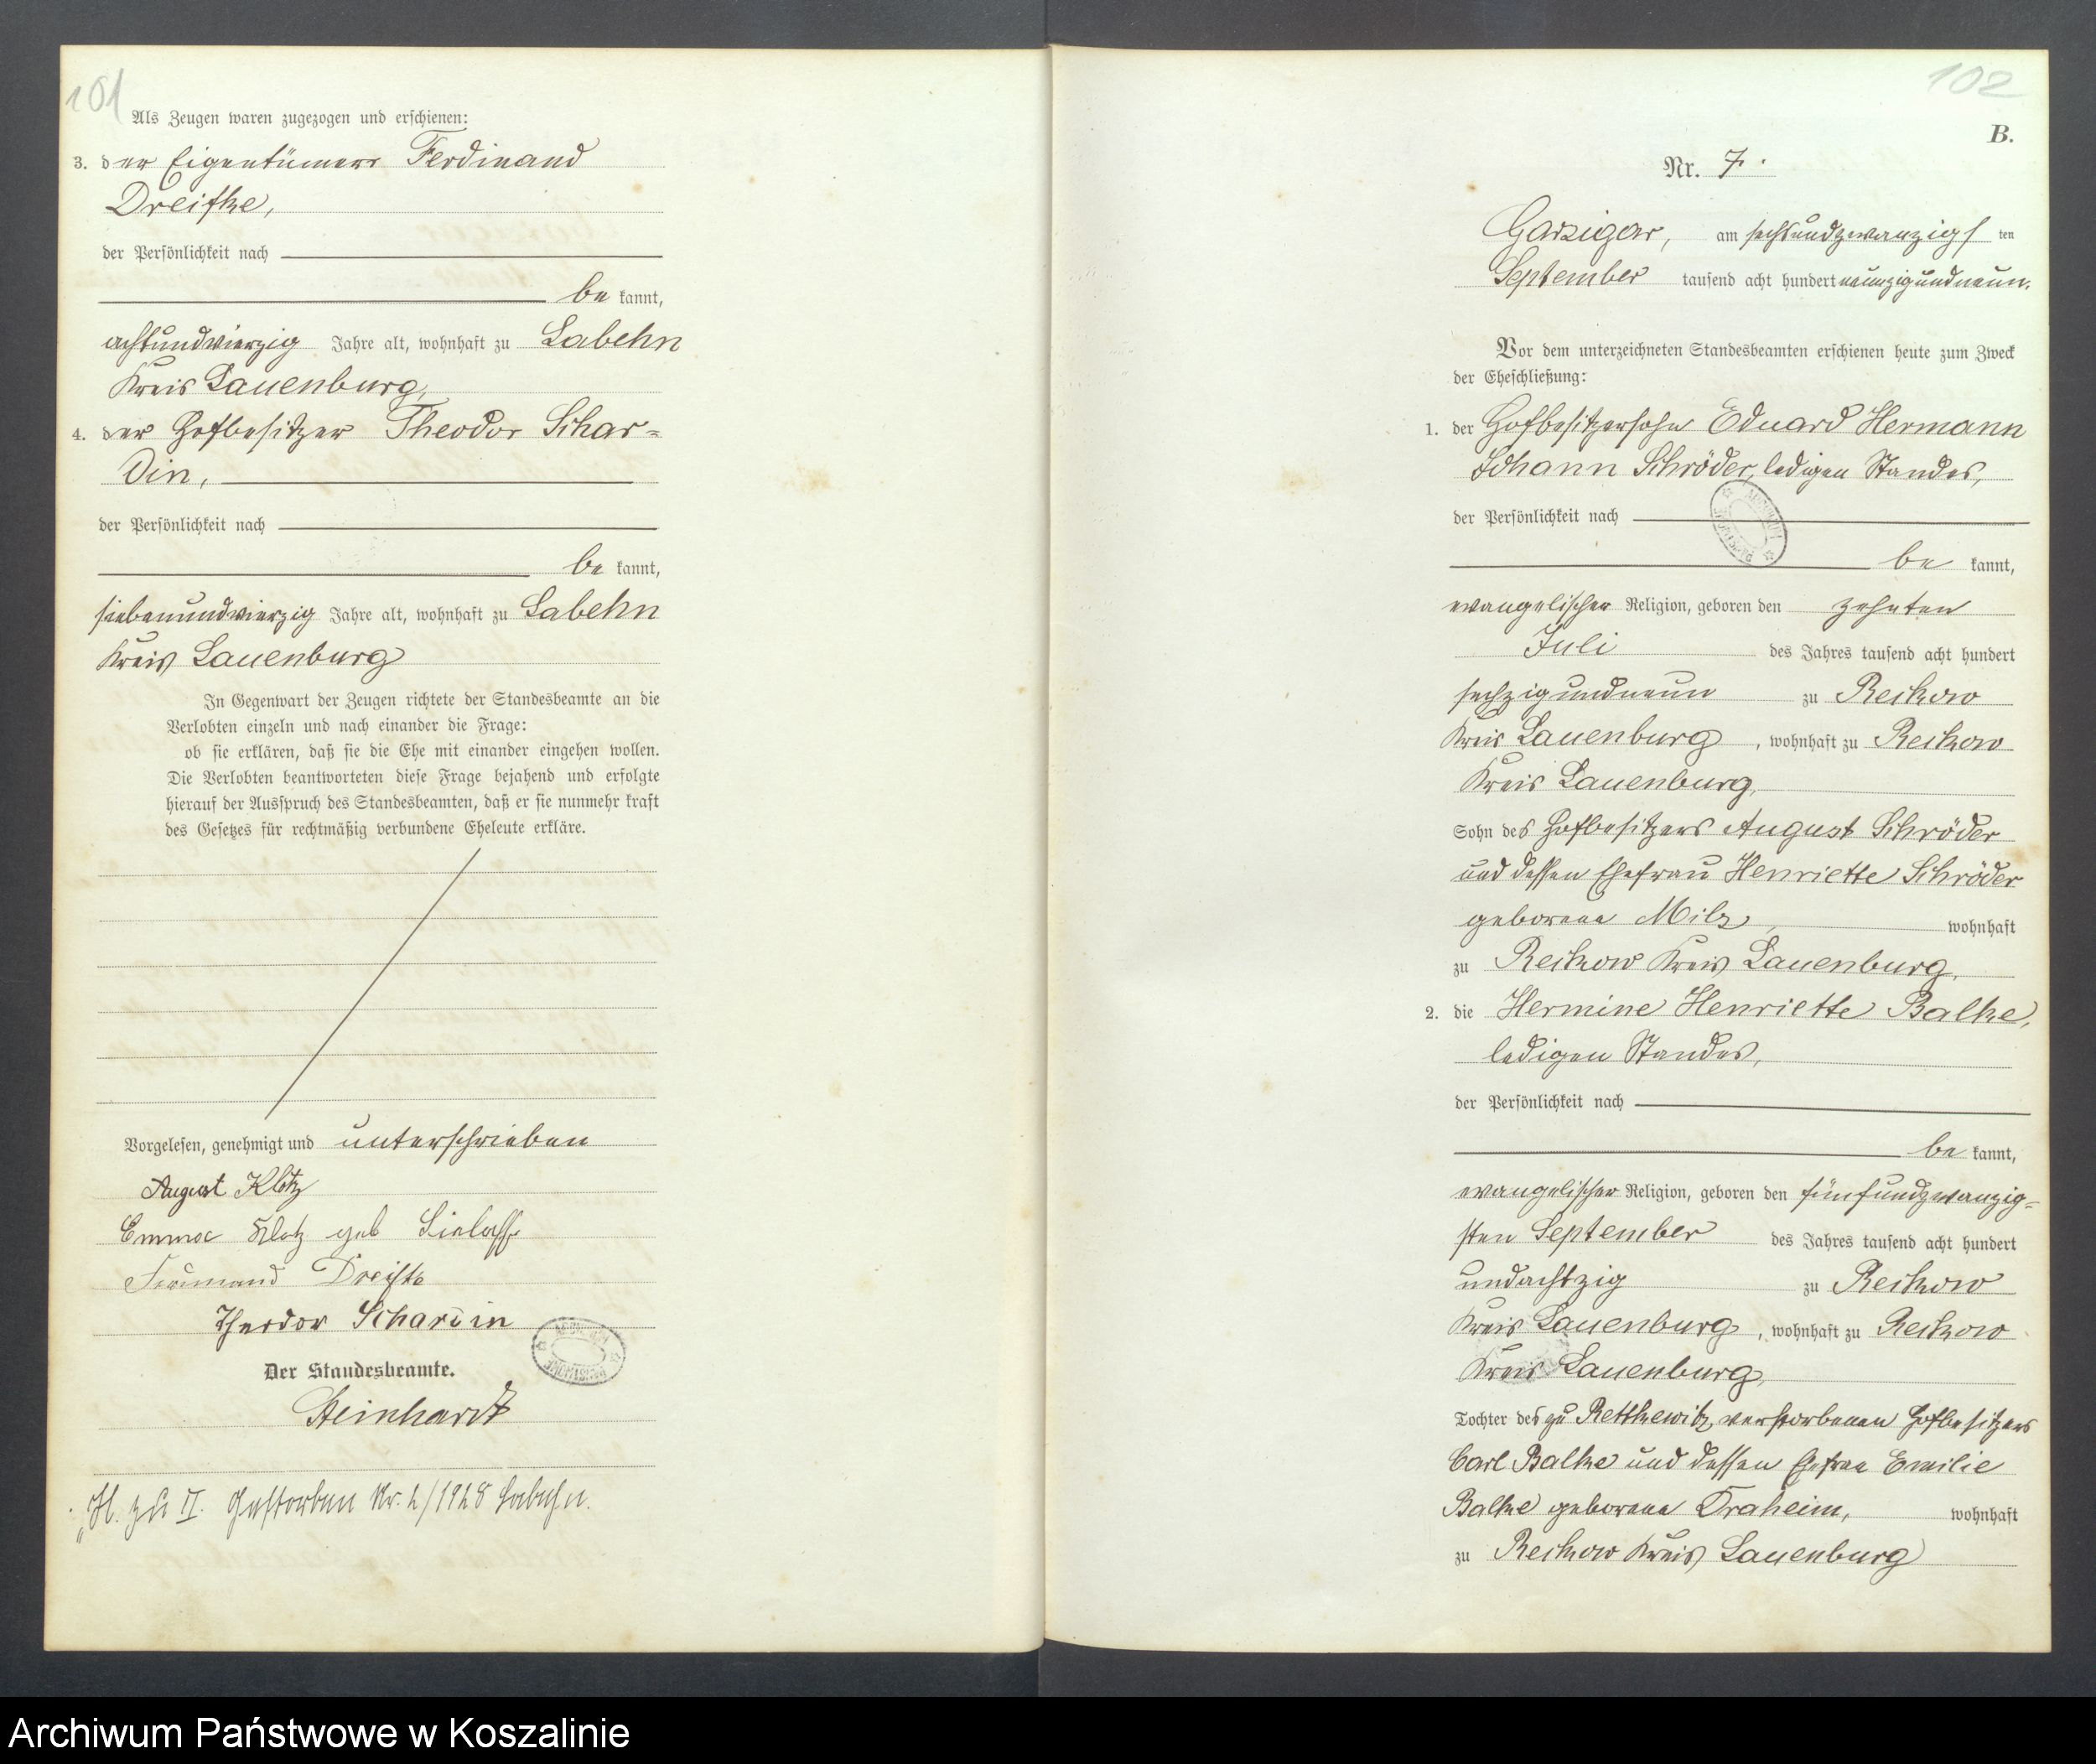 101
Als Zeugen waren zugezogen und erschienen:
3. der Eigentümer Ferdinand
Dreifke,
der Persönlichkeit nach
be kannt,
achtundvierzig Jahre alt, wohnhaft zu Labehn
Kreis Lauenburg,
4. der Hofbesitzer Theodor Schar=
din,
der Persönlichkeit nach
be kannt,
siebenundvierzig Jahre alt, wohnhaft zu Labehn
Kreis Lauenburg
In Gegenwart der Zeugen richtete der Standesbeamte an die
Verlobten einzeln und nach einander die Frage:
ob sie erklären, daß sie die Ehe mit einander eingehen wollen.
Die Verlobten beantworteten diese Frage bejahend und erfolgte
hierauf der Ausspruch des Standesbeamten, daß er sie nunmehr kraft
des Gesetzes für rechtmäßig verbundene Eheleute erkläre.
Vorgelesen, genehmigt und unterschrieben
August Klotz
Emma Klotz geb Lielaff
Ferdinand Dreifke
Theodor Schardin
Der Standesbeamte.
Steinhardt
H. zu II. Gestorben Nr. 2/1928 Labehn.
102
B.
Nr. 7.
Garzigar, am sechsundzwanzigs ten
September tausend acht hundert neunzigundneun.
Vor dem unterzeichneten Standesbeamten erschienen heute zum Zweck
der Eheschließung:
1. der Hofbesitzersohn Eduard Hermann
Johann Schröder, ledigen Standes,
der Persönlichkeit nach
be kannt,
evangelischer Religion, geboren den zehnten
Juli des Jahres tausend acht hundert
sechzigundneun zu Reckow
Kreis Lauenburg, wohnhaft zu Reckow
Kreis Lauenburg,
Sohn des Hofbesitzers August Schröder
und dessen Ehefrau Henriette Schröder
geborene Milz, wohnhaft
zu Reckow Kreis Lauenburg,
2. die Hermine Henriette Balke,
ledigen Standes,
der Persönlichkeit nach
be kannt,
evangelischer Religion, geboren den fünfundzwanzig=
sten September des Jahres tausend acht hundert
undachtzig zu Reckow
Kreis Lauenburg, wohnhaft zu Reckow
Kreis Lauenburg,
Tochter des zu Rettkewitz verstorbenen Hofbesitzers
Carl Balke und dessen Ehefrau Emilie
Balke geborene Draheim, wohnhaft
zu Reckow Kreis Lauenburg
Archiwum Państwowe w Koszalinie